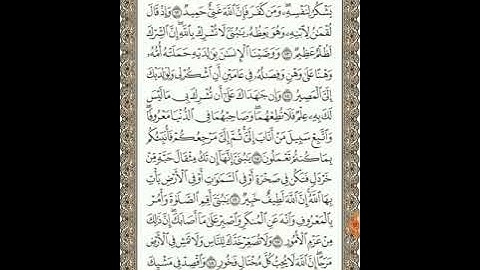 يَشْكُرُ لِنَفْسِهِۦ ۖ وَمَن كَفَرَ فَإِنَّ ٱللَّهَ غَنِىٌّ حَمِيدٌ ۝١٢ وَإِذْ قَالَ
لُقْمَٰنُ لِٱبْنِهِۦ وَهُوَ يَعِظُهُۥ يَٰبُنَىَّ لَا تُشْرِكْ بِٱللَّهِ ۖ إِنَّ ٱلشِّرْكَ
لَظُلْمٌ عَظِيمٌ ۝١٣ وَوَصَّيْنَا ٱلْإِنسَٰنَ بِوَٰلِدَيْهِ حَمَلَتْهُ أُمُّهُۥ
وَهْنًا عَلَىٰ وَهْنٍ وَفِصَٰلُهُۥ فِى عَامَيْنِ أَنِ ٱشْكُرْ لِى وَلِوَٰلِدَيْكَ
إِلَىَّ ٱلْمَصِيرُ ۝١٤ وَإِن جَٰهَدَاكَ عَلَىٰٓ أَن تُشْرِكَ بِى مَا لَيْسَ
لَكَ بِهِۦ عِلْمٌ فَلَا تُطِعْهُمَا ۖ وَصَاحِبْهُمَا فِى ٱلدُّنْيَا مَعْرُوفًا ۖ
وَٱتَّبِعْ سَبِيلَ مَنْ أَنَابَ إِلَىَّ ۚ ثُمَّ إِلَىَّ مَرْجِعُكُمْ فَأُنَبِّئُكُم
بِمَا كُنتُمْ تَعْمَلُونَ ۝١٥ يَٰبُنَىَّ إِنَّهَآ إِن تَكُ مِثْقَالَ حَبَّةٍ مِّنْ
خَرْدَلٍ فَتَكُن فِى صَخْرَةٍ أَوْ فِى ٱلسَّمَٰوَٰتِ أَوْ فِى ٱلْأَرْضِ يَأْتِ
بِهَا ٱللَّهُ ۚ إِنَّ ٱللَّهَ لَطِيفٌ خَبِيرٌ ۝١٦ يَٰبُنَىَّ أَقِمِ ٱلصَّلَوٰةَ وَأْمُرْ
بِٱلْمَعْرُوفِ وَٱنْهَ عَنِ ٱلْمُنكَرِ وَٱصْبِرْ عَلَىٰ مَآ أَصَابَكَ ۖ إِنَّ ذَٰلِكَ
مِنْ عَزْمِ ٱلْأُمُورِ ۝١٧ وَلَا تُصَعِّرْ خَدَّكَ لِلنَّاسِ وَلَا تَمْشِ فِى ٱلْأَرْضِ
مَرَحًا ۖ إِنَّ ٱللَّهَ لَا يُحِبُّ كُلَّ مُخْتَالٍ فَخُورٍ ۝١٨ وَٱقْصِدْ فِى مَشْيِكَ